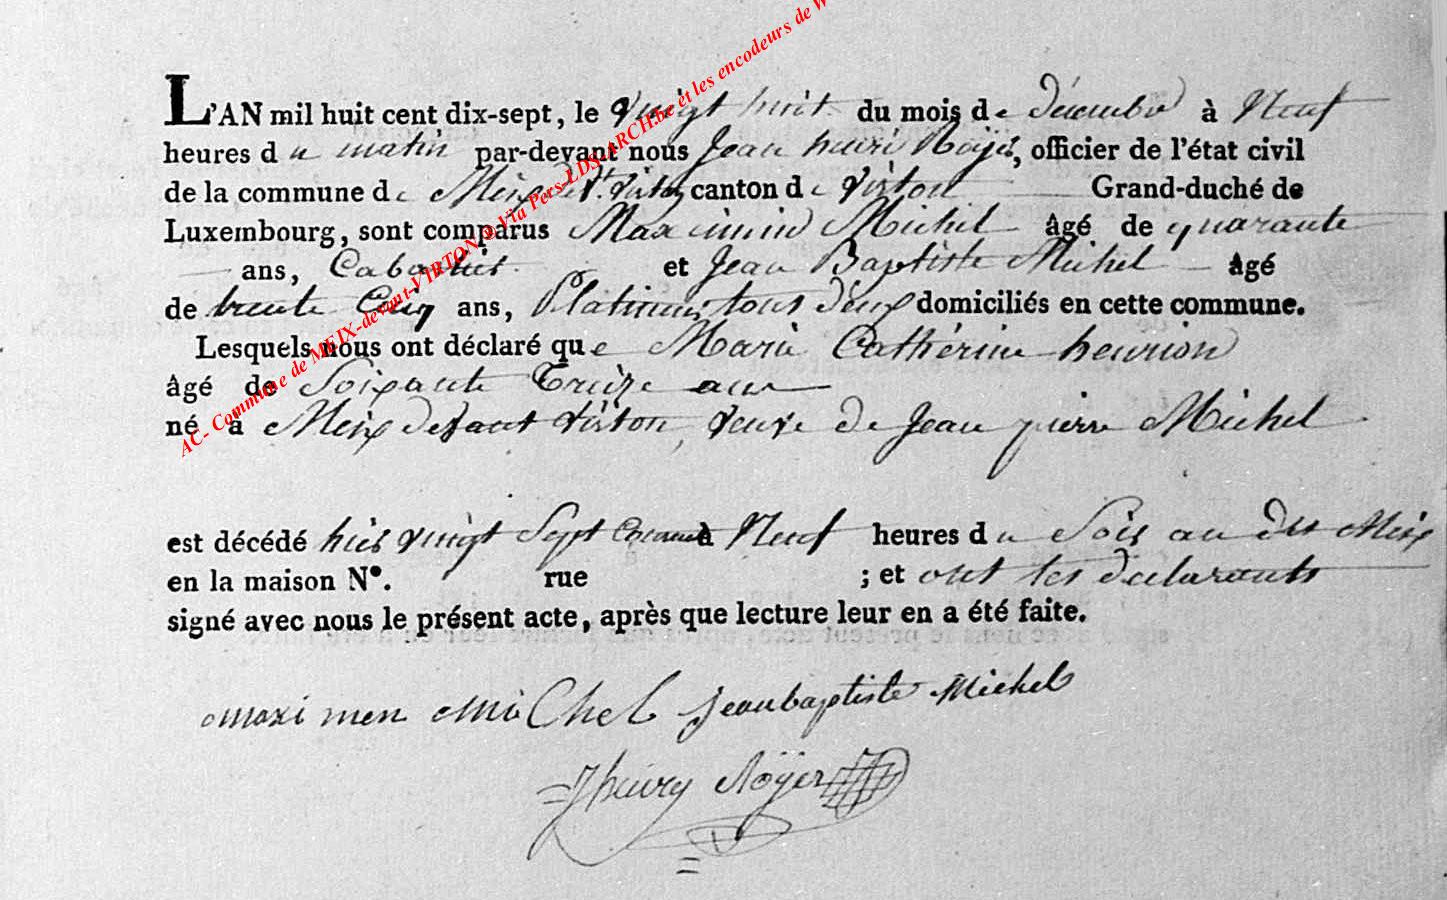 L'AN mil huit cent dix-sept, le vingt huit du mois de décembre à Neuf
heures du matin par-devant nous Jean henri Roÿer, officier de l'état civil
de la commune de Meix devt. Virton canton de Virton Grand-duché de
Luxembourg, sont comparus Maximin Michel âgé de quarante
ans, Cabartier et Jean Baptiste Michel âgé
de trente Cinq ans, Platineur tous deux domiciliés en cette commune.
Lesquels nous ont déclaré que Marie Cathérine henrion
âgé de Soixante Treize ans
né à Meix devant Virton, veuve de Jean pierre Michel
est décédé hier vingt Sept Courant à Neuf heures du Soir au dit Meix
en la maison N°. rue ; et ont les declarants
signé avec nous le présent acte, après que lecture leur en a été faite.
maxi men miChel jeanbaptiste Michel
Jhenry Roÿer
AC- Commune de MEIX-devant-VIRTON © Via Pers-LDS-ARCH.be et les encodeurs de